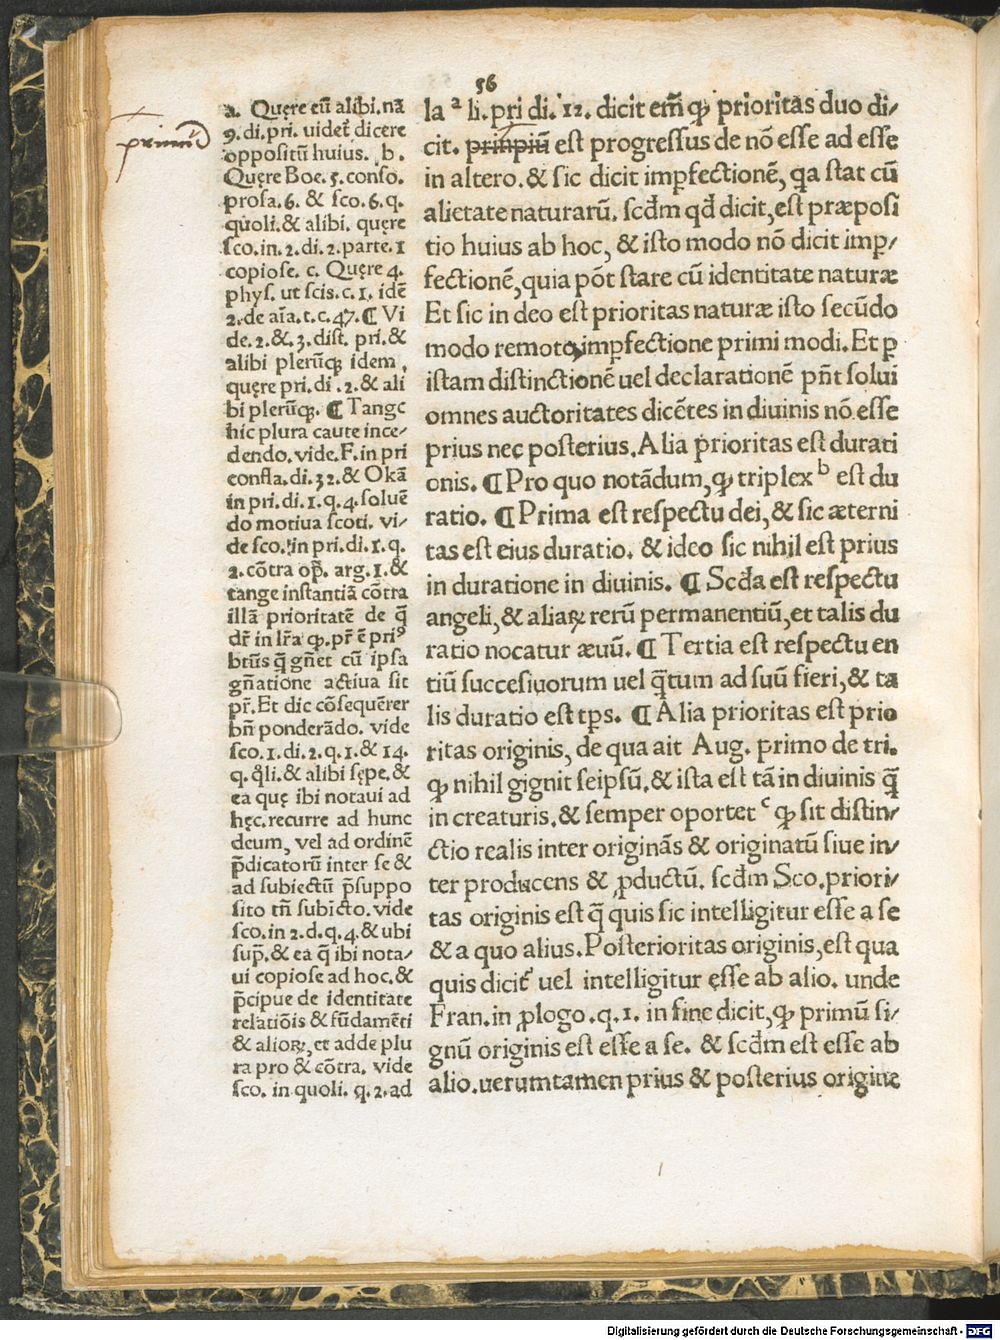 56
primū
a. Quęre eū alibi. nā
9. di. pri. uidet̄ dicere
oppositū huius. b.
Quęre Boe. 5. conso.
prosa. 6. & sco. 6. q.
quoli. & alibi. quęre
sco. in. 2. di. 2. parte. 1
copiose. c. Quęre 4.
phys. ut scis. c. 1. idē
2. de aīa. t. c. 47. ¶ Vi
de. 2. &. 3. dist. pri. &
alibi plerūq; idem,
quęre pri. di. 2. & ali
bi plerūq;. ¶ Tange
hic plura caute ince/
dendo. vide. F. in pri
confla. di. 32. & Okā
in pri. di. 1. q. 4. soluē
do motiua scoti. vi/
de sco. in pri. di. 1. q.
2. cōtra op̄. arg. 1. &
tange instantiā cōtra
illā prioritatē de q̄
dr̄ in lr̄a ꝙ. pr̄ ē priꝰ
btūs q̄ gn̄et cū ipsa
gn̄atione actiua sit
pr̄. Et dic cōsequērer
bn̄ ponderādo. vide
sco. 1. di. 2. q. 1. & 14.
q. q̄li. & alibi sępe. &
ea quę ibi notaui ad
hęc. recurre ad hunc
deum, vel ad ordinē
p̄dicatorū inter se &
ad subiectū p̄suppo
sito tn̄ subicto. vide
sco. in 2. d. q. 4. & ubi
sup̄. & ea q̄ ibi nota/
ui copiose ad hoc. &
p̄cipue de identitate
relatiōis & fūdamēti
& alioꝝ, et adde plu
ra pro & cōtra. vide
sco. in quoli. q. 2. ad
la a li. pri di. 12. dicit em̄ ꝙ prioritas duo di/
cit. prinpiū est progressus de nō esse ad esse
in altero. & sic dicit imꝑfectionē, qa stat cū
alietate naturarū. scd̄m qd̄ dicit, est præposi
tio huius ab hoc, & isto modo nō dicit imꝑ/
fectionē, quia pōt stare cū identitate naturæ
Et sic in deo est prioritas naturæ isto secūdo
modo remota, imꝑfectione primi modi. Et ꝑ
istam distinctionē uel declarationē pn̄t solui
omnes auctoritates dicētes in diuinis nō esse
prius nec posterius. Alia prioritas est durati
onis. ¶ Pro quo notādum, ꝙ triplex b est du
ratio. ¶ Prima est respectu dei, & sic æterni
tas est eius duratio. & ideo sic nihil est prius
in duratione in diuinis. ¶ Scd̄a est respectu
angeli, & aliaꝝ rerū permanentiū, et talis du
ratio nocatur æuū. ¶ Tertia est respectu en
tiū succesiuorum uel q̄tum ad suū fieri, & ta
lis duratio est tp̄s. ¶ Alia prioritas est prio
ritas originis, de qua ait Aug. primo de tri.
ꝙ nihil gignit seipsū. & ista est tā in diuinis q̄
in creaturis. & semper oportet c ꝙ sit distin/
ctio realis inter originās & originatū siue in/
ter producens & ꝓductū. scd̄m Sco. priori/
tas originis est q̄ quis sic intelligitur esse a se
& a quo alius. Posterioritas originis, est qua
quis dicit̄ uel intelligitur esse ab alio. unde
Fran. in ꝓlogo. q. 1. in fine dicit, ꝙ primū si/
gnū originis est esse a se. & scd̄m est esse ab
alio. uerumtamen prius & posterius origine
Digitalisierung gefördert durch die Deutsche Forschungsgemeinschaft - DFG